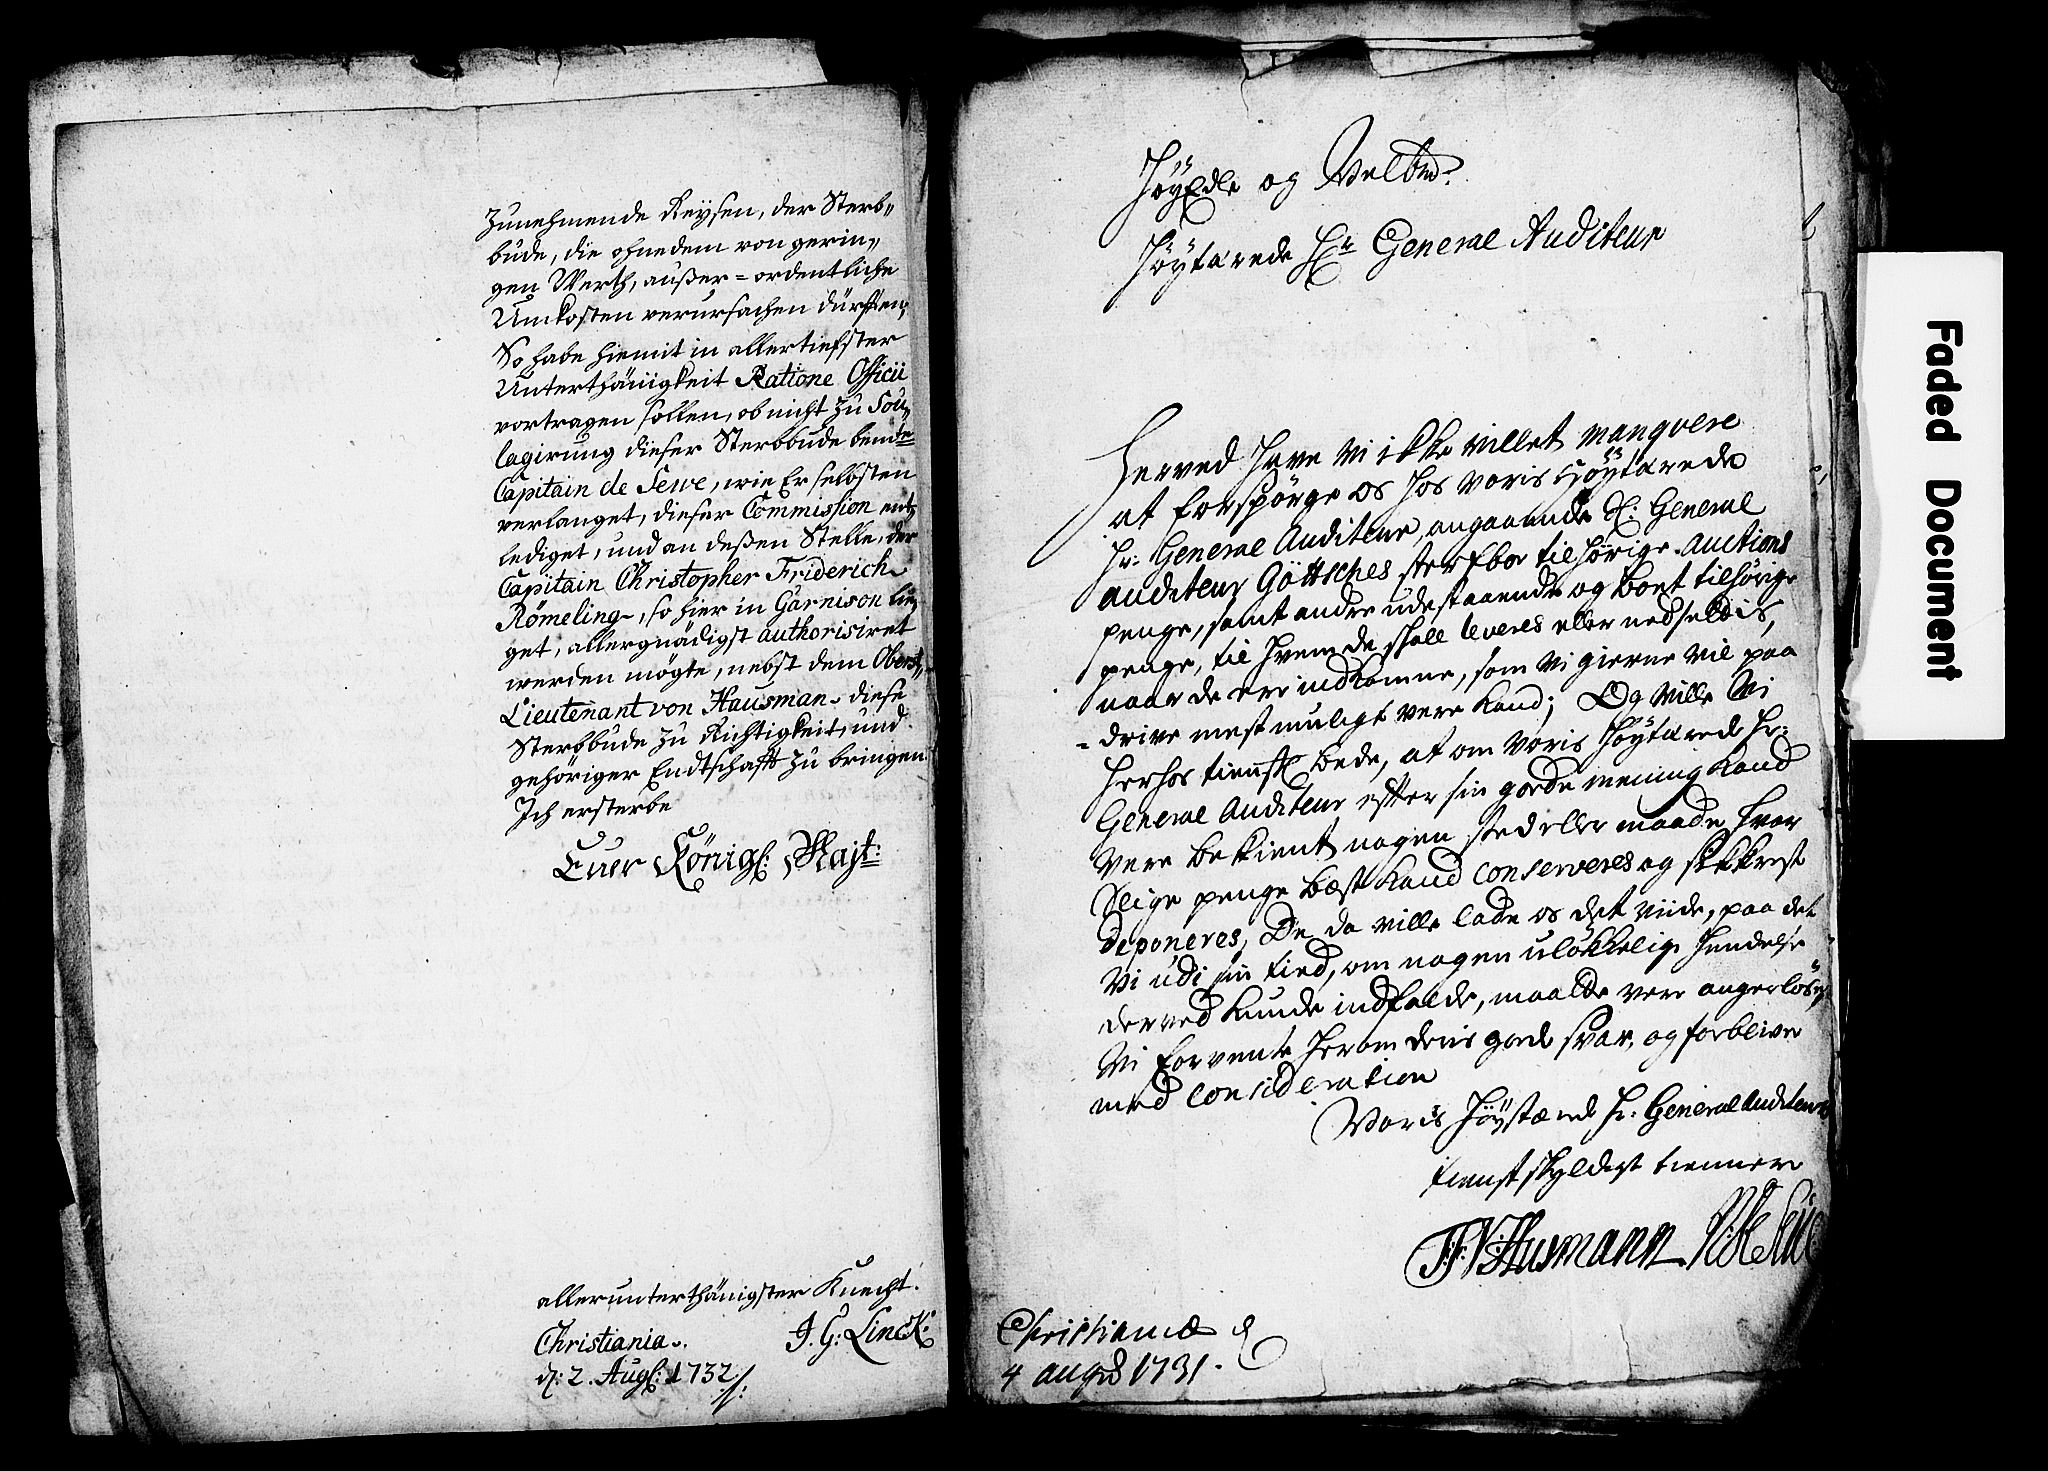 zunehmende Reysen, der Sterb„
bude, die ohnedem von gerin„
gen Werth, außer=ordentliche
Umkosten verursachen dürfften;
So habe hiemit in allertiefster
Unterthänigkeit Ratione Officii
vortragen sollen, ob nicht zu Sou„
lagirung dieser Sterbbude bemelte
Capitain de Seve, wie Er selbsten
verlanget, dieser Commission ent„
lediget, und an deßen Stelle, der
Capitain Christopher Friderich
Römeling, so hier in Garnison lie„
get, allergnädigst authorisiret
werden mögte, nebst dem Obrist„
Lieutenant von Hausman diese
Sterbbude zu Richtigkeit, und
gehöriger Endtschafft zu bringen.
Ich ersterbe
Euer Königl: Mayt:
allerunterthänigster Knecht.
Christiania. J. G: Linck:
d: 2. Augl: 1732./:
HöyEdle og Velbrd.
Höytærede Hr General Auditeur
Herved have vi ikke villet manqvere
at forspörge os hos voris Höytærede
Hr: General Auditeur, angaaende H: General
Auditeur Göttsches sterfboe tilhörige Auctions
penge, samt andre udestaaende og boet tilhörige
penge, til hvem de skall leveres eller nedsettis,
naar de ere indkomne, som vi gierne vil paa
=drive mest muligt være kand; Og ville Vi
herhos tienstl bede, at om voris Höytærede Hr:
General Auditeur efter sin goede mening kand
være bekient nogen sted eller maade hvor
Slige penge bæst kand conserveres og sikkrest
deponeres, De da ville lade os det viide, paa det
Vi udi sin tied, om nogen ulökkelig hendelse
derved kunde indfalde, maatte være angerlöse,
Vi forvente herom deris goede svar, og forblive
med consideration
Voris Höystærede Hr: General Auditeurs
tienstskyldigst tiennere
F: V: Husmann R: de Seve
Christiania d
4 augusti 1731.
Faded Document